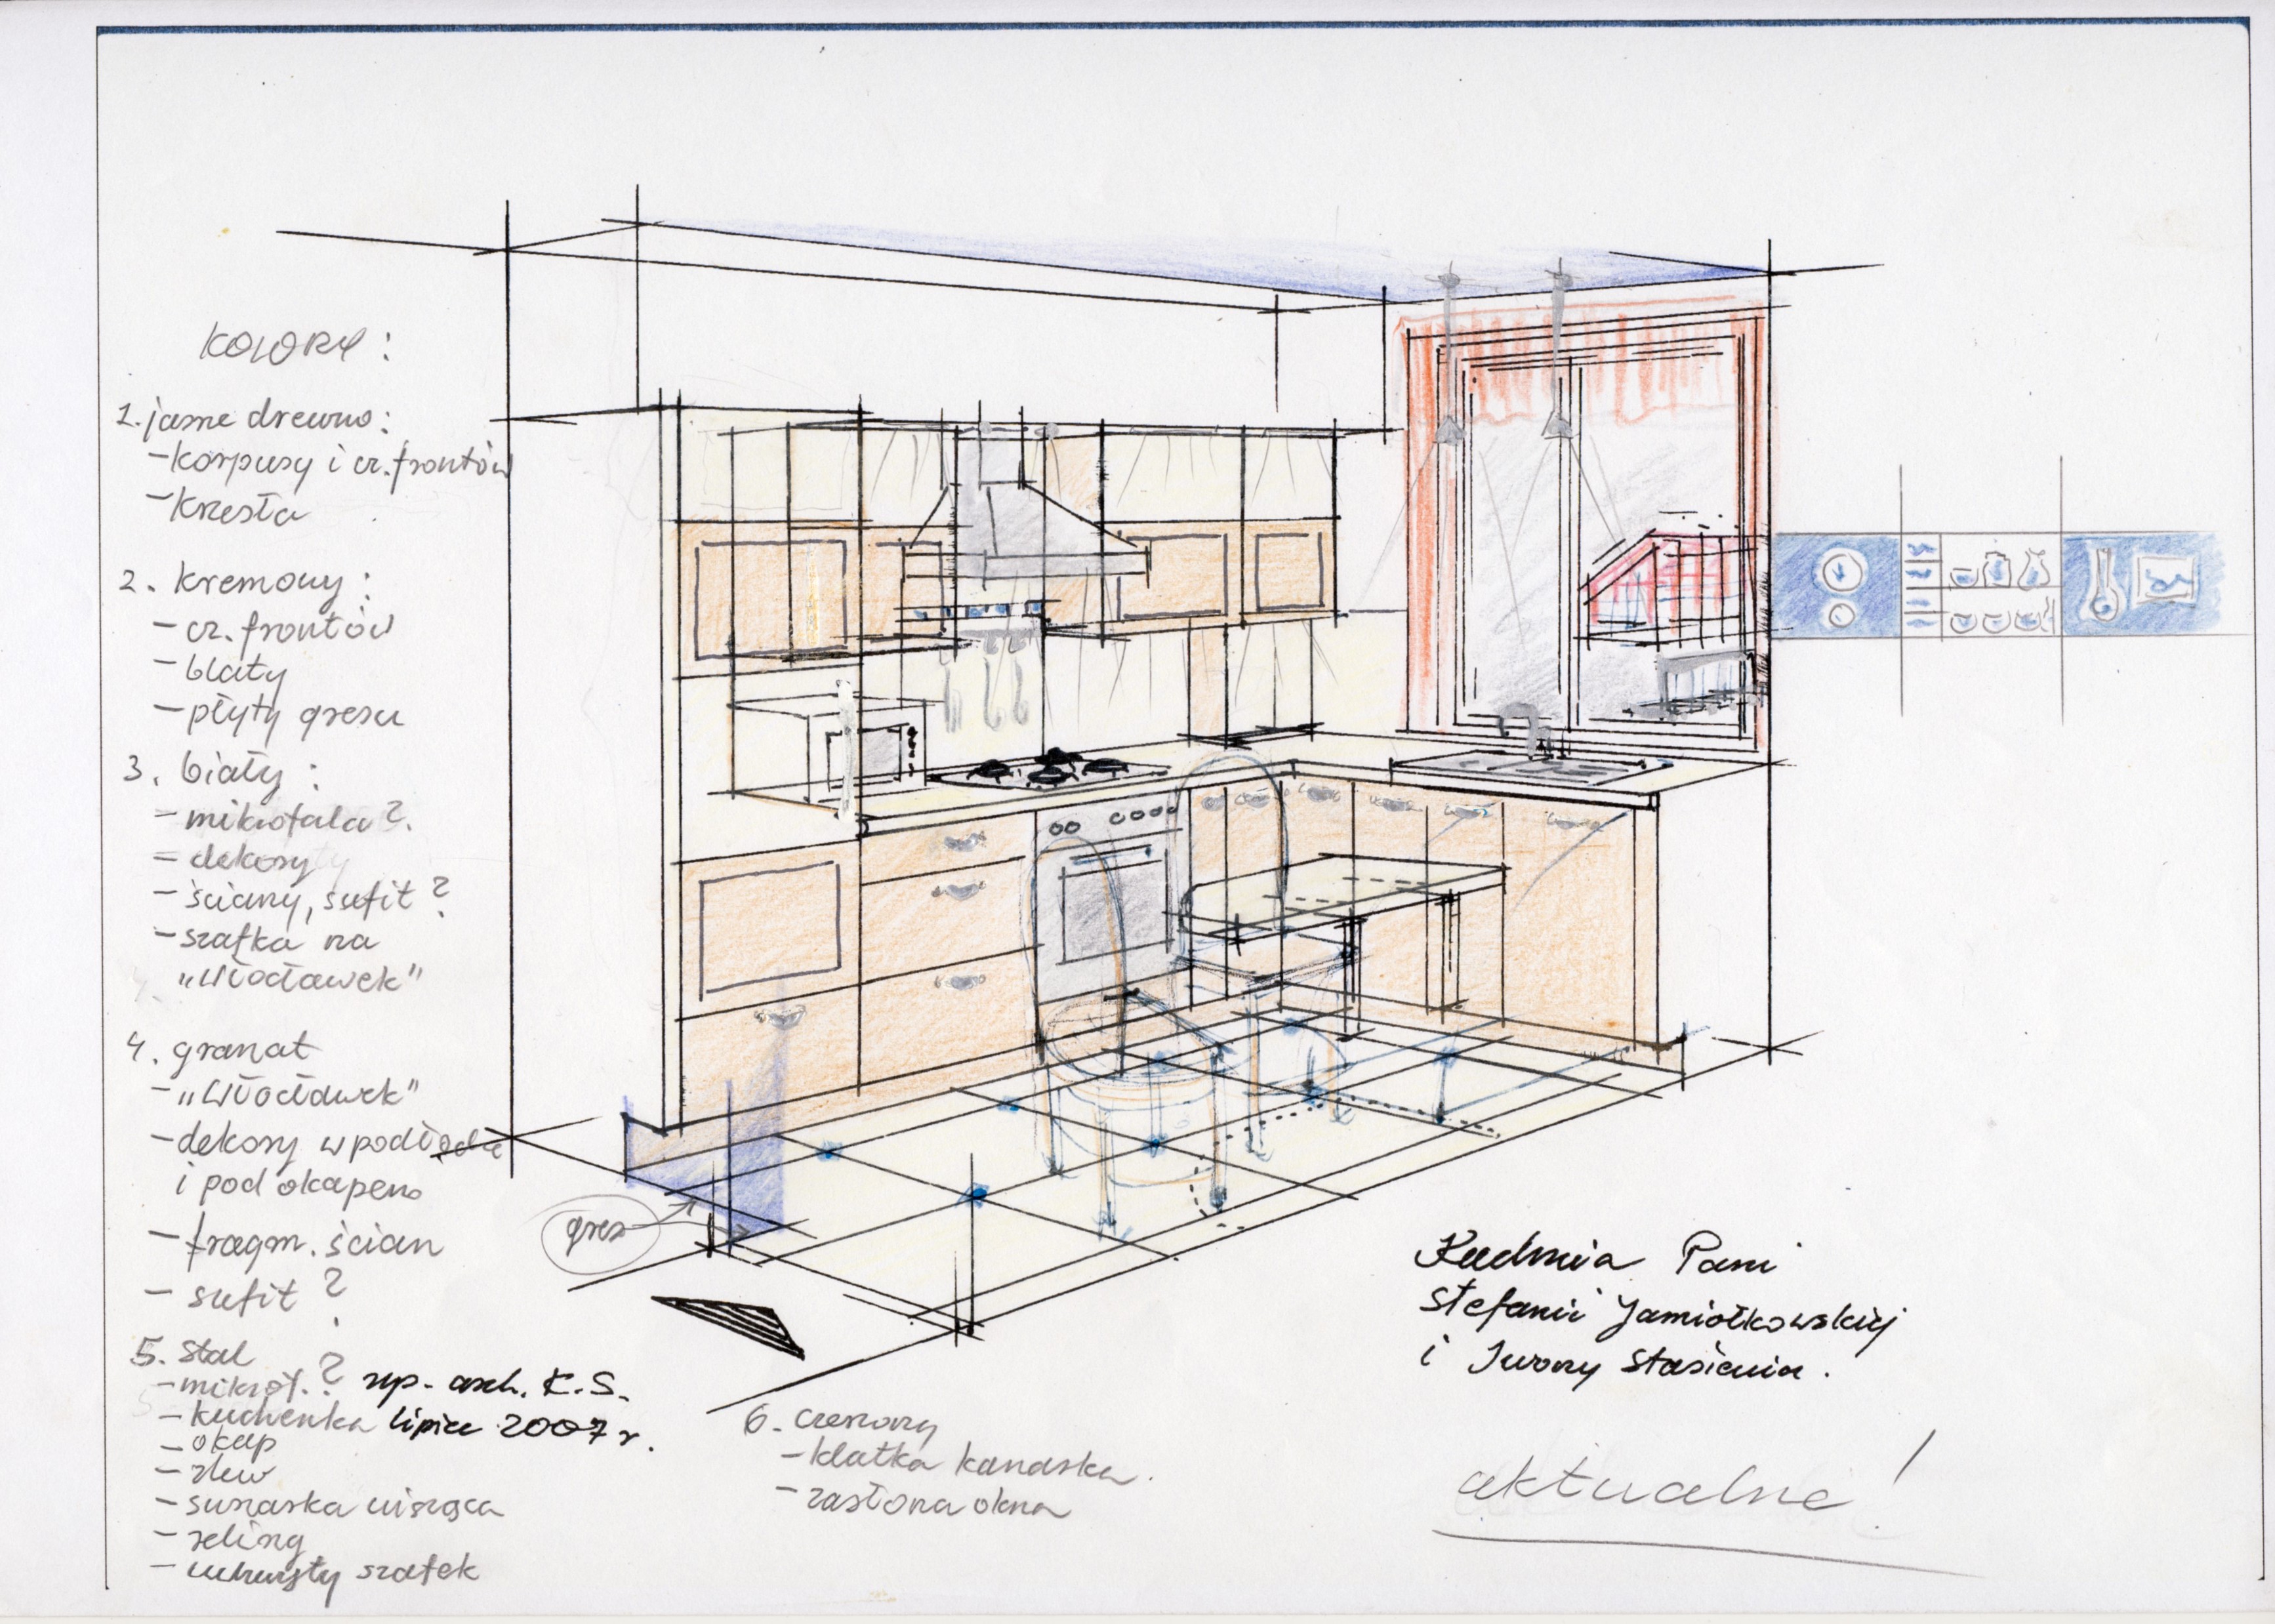 KOLORY:
1. jasne drewno:
- korpusy i cz. frontów
- krzesła
2. kremowy:
- cz. frontów
- blaty
- płyty gresu
3. biały:
- mikrofala?
- dekory
- ściany, sufit?
- szafka na
"Włocławek"
4. granat
- "Włocławek"
- dekory w podłodze
i pod okapem
- fragm. ścian
- sufit?
5. stal
- mikrof.?
- kuchenka
- okap
- zlew
- suszarka wisząca
- reling
- uchwyty szafek
rys. arch. K.S.
lipiec 2007 r.
6. czerwony
- klatka kanarka.
- zasłona okna
gres
Kuchnia Pani
Stefanii Jamiołkowskiej
i Iwony Stasienia.
aktualne!